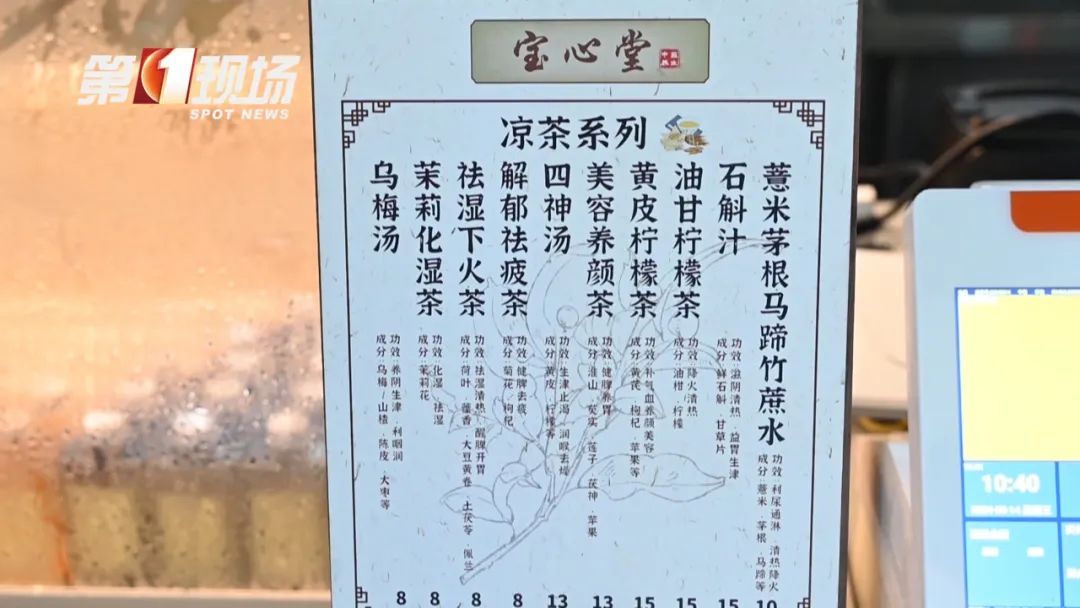 第1现场
SPOT NEWS
宝心堂
凉茶系列
薏米茅根马蹄竹蔗水
功效 利尿通淋 清热降火
成分 薏米 茅根 马蹄等
石斛汁
功效:滋阴清热 益胃生津
成分:鲜石斛 甘草片
油甘柠檬茶
功效:降火清热
成分:油柑 柠檬
黄皮柠檬茶
功效:补气血养颜美容
成分:黄芪 枸杞 苹果等
美容养颜茶
功效:健脾养胃
成分:淮山 芡实 莲子 茯神 苹果
四神汤
功效:生津止渴 润喉去燥
成分:黄皮 柠檬等
解郁祛疲茶
功效:健脾去疲
成分:菊花 枸杞
祛湿下火茶
功效:祛湿清热 醒脾开胃
成分:荷叶 藿香 大豆黄卷 土茯苓 佩兰
茉莉化湿茶
功效:化湿 祛湿
成分:茉莉花
乌梅汤
功效:养阴生津 利咽润
成分:乌梅/山楂 陈皮 大枣等
8 8 8 8 13 13 15 15 15 10
10:40